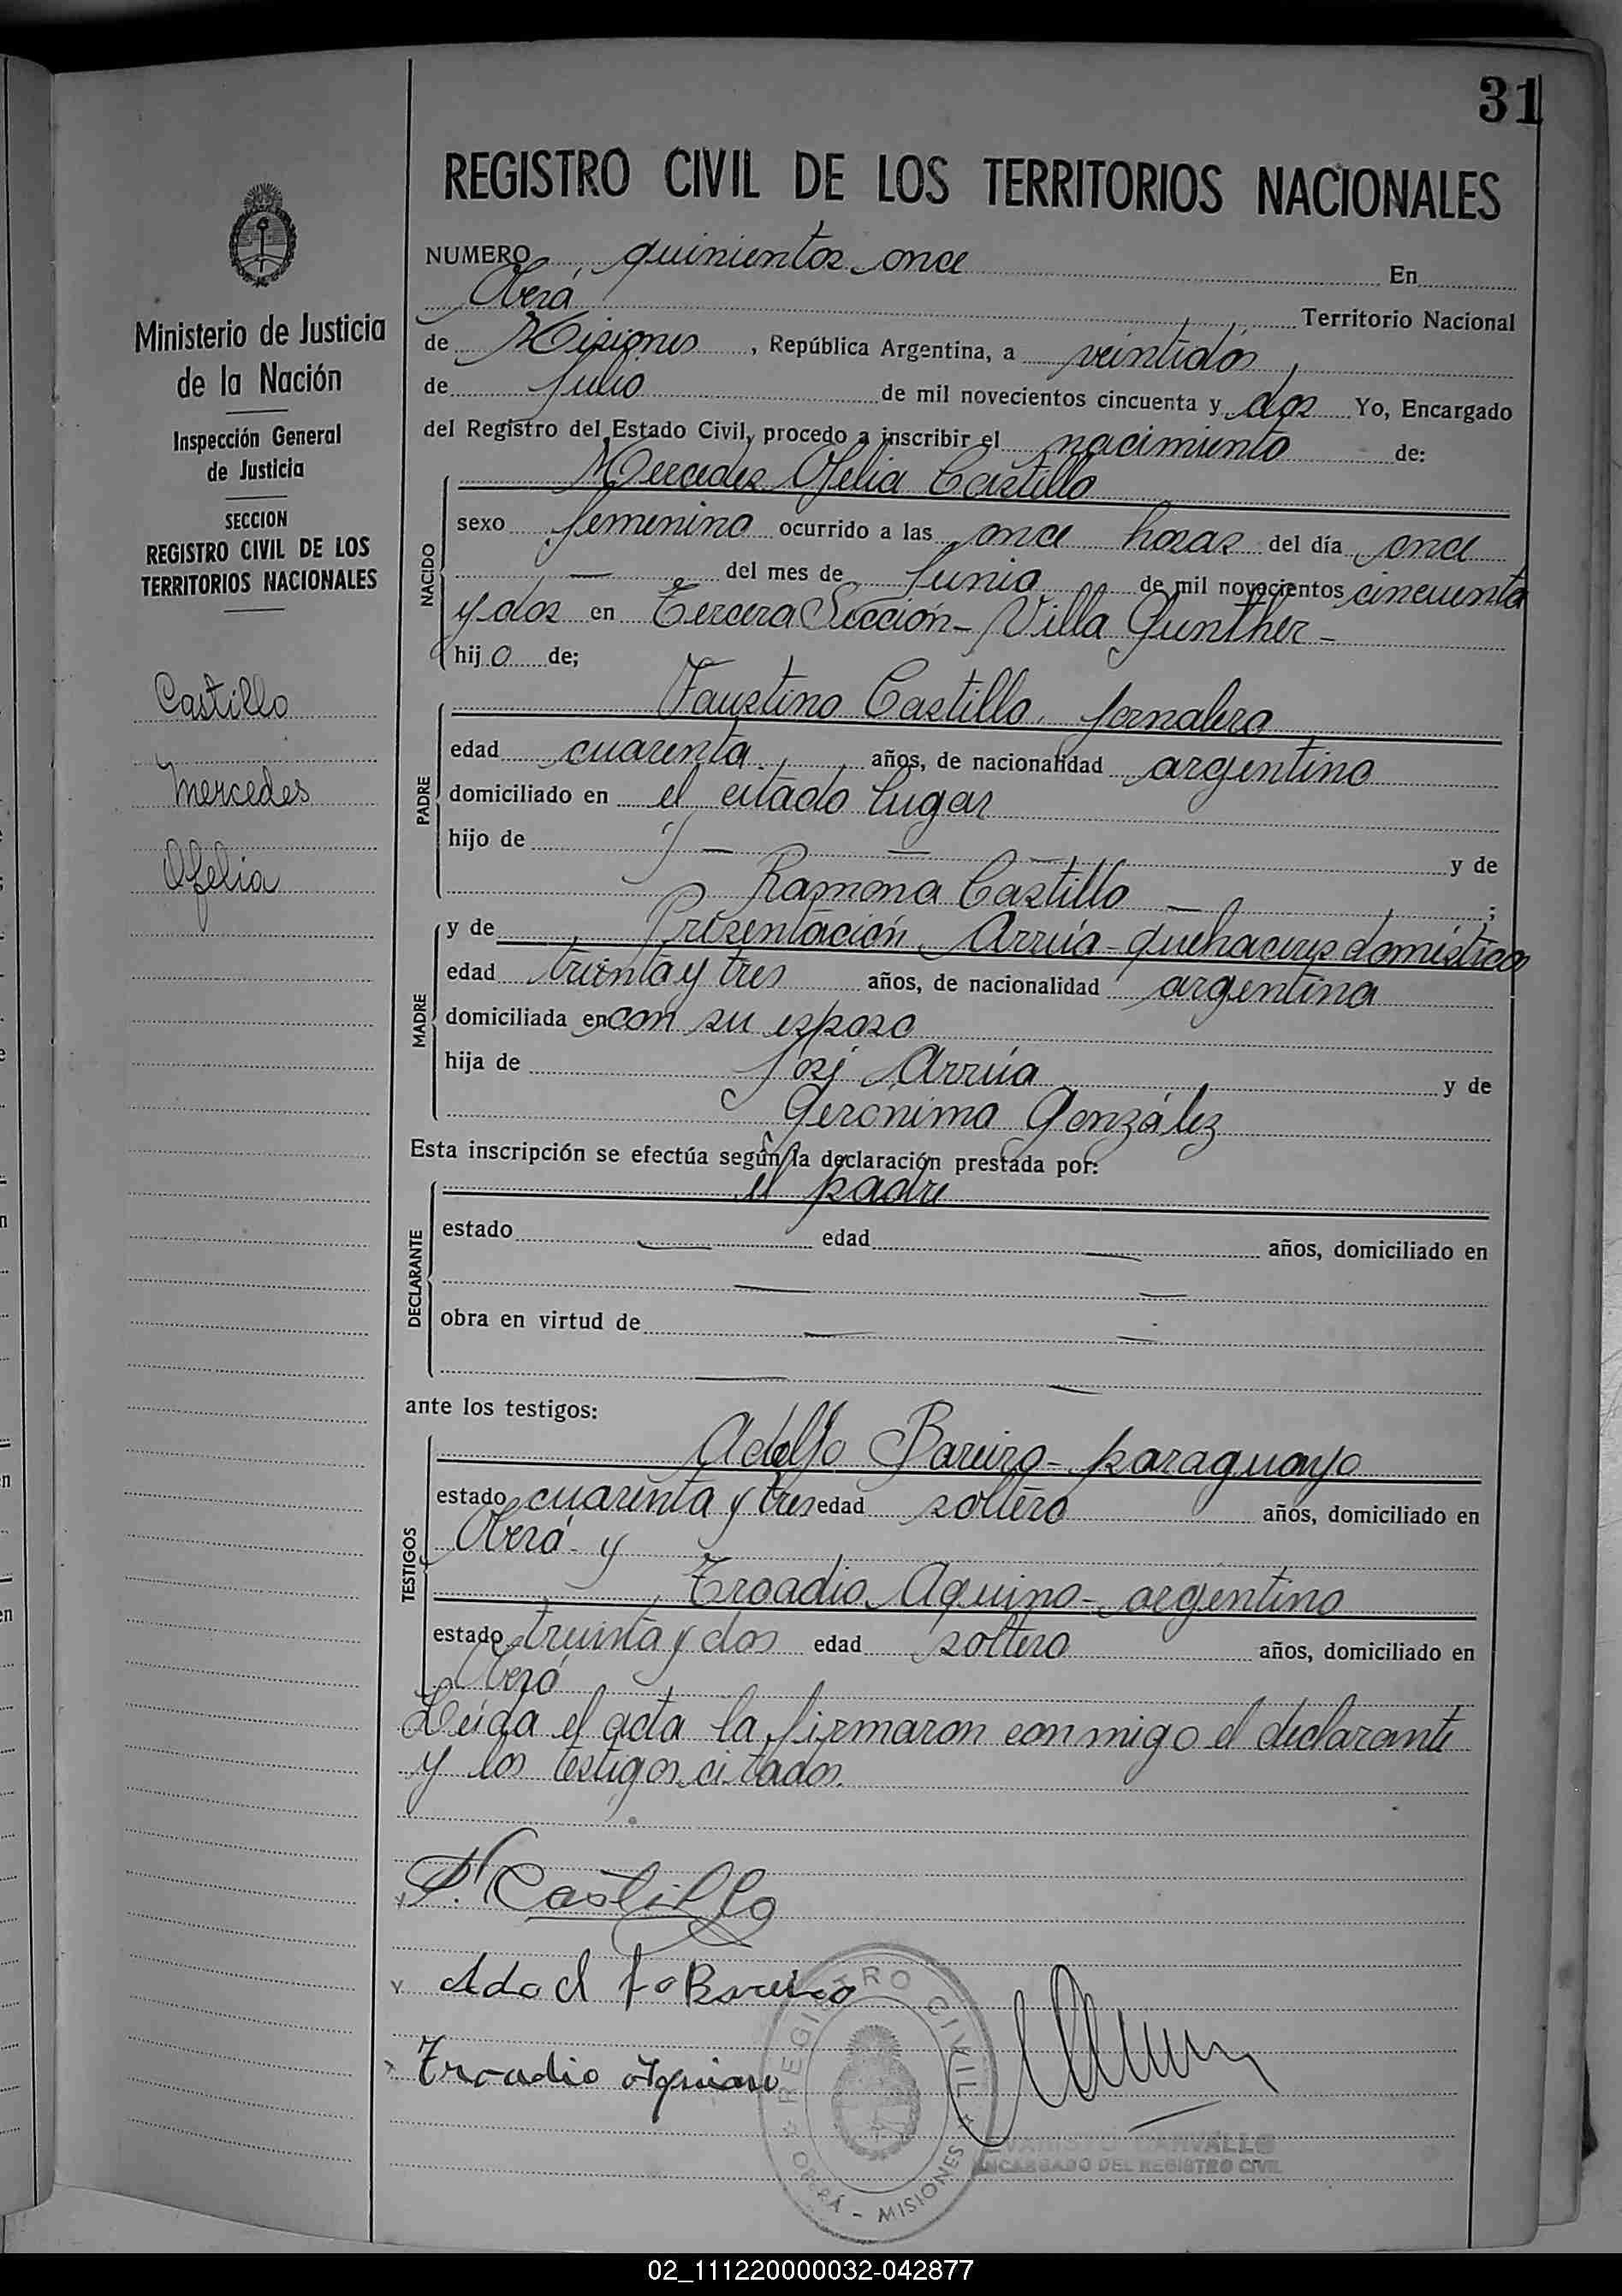 31
REGISTRO CIVIL DE LOS TERRITORIOS NACIONALES
Ministerio de Justicia
de la Nación
Inspección General
de Justicia
SECCION
REGISTRO CIVIL DE LOS
TERRITORIOS NACIONALES
Castillo
Mercedes
Ofelia
NUMERO quinientos once En
Oberá Territorio Nacional
de Misiones, República Argentina, a veintidos
de Julio de mil novecientos cincuenta y dos Yo, Encargado
del Registro del Estado Civil, procedo a inscribir el nacimiento de:
NACIDO
Mercedes Ofelia Castillo
sexo femenino ocurrido a las once horas del día once
— del mes de Junio de mil novecientos cincuenta
y dos en Tercera Sección - Villa Gunther -
hijo de;
PADRE
Faustino Castillo, jornalero
edad cuarenta años, de nacionalidad argentino
domiciliado en el citado lugar
hijo de — — — y de
Ramona Castillo — ;
MADRE
y de Presentación Arrúa - quehaceres domésticos
edad treinta y tres años, de nacionalidad argentina
domiciliada en con su esposo
hija de José Arrúa y de
Gerónima González
Esta inscripción se efectúa según la declaración prestada por:
DECLARANTE
el padre
estado — edad — años, domiciliado en
— —
obra en virtud de — —
— —
ante los testigos:
TESTIGOS
Adolfo Bareiro - paraguayo
estado cuarenta y tres edad soltero años, domiciliado en
Oberá - y
Troadio Aquino - argentino
estado treinta y dos edad soltero años, domiciliado en
Oberá
Leída el acta la firmaron conmigo el declarante
y los testigos citados.
F. Castillo
Adolfo Bareiro
Troadio Aquino
REGISTRO CIVIL
OBERÁ - MISIONES
EVARISTO CARVALLO
ENCARGADO DEL REGISTRO CIVIL
02_111220000032-042877